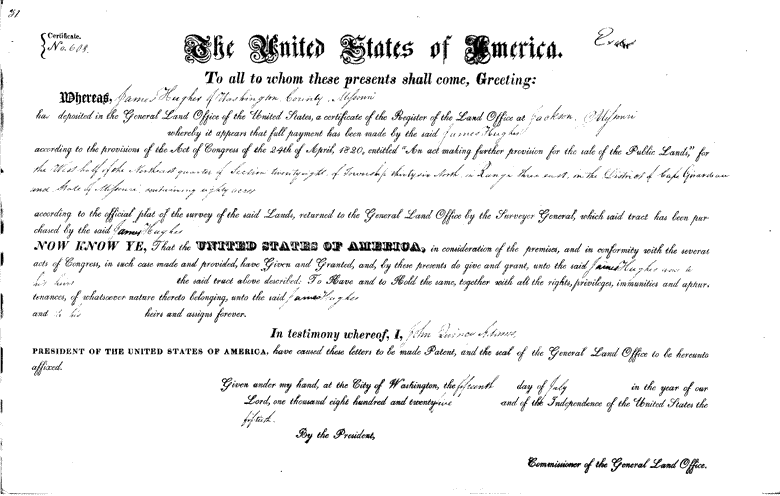 31
Certificate.
No. 608.
The United States of America.
To all to whom these presents shall come, Greeting:
Whereas, James Hughes of Washington County, Missouri
has deposited in the General Land Office of the United States, a certificate of the Register of the Land Office at Jackson, Missouri
whereby it appears that full payment has been made by the said James Hughes
according to the provisions of the Act of Congress of the 24th of April, 1820, entitled "An act making further provision for the sale of the Public Lands," for
the West half of the Northeast quarter of Section twenty eight, of Township thirty six North, in Range three east, in the District of Cape Girardeau
and State of Missouri, containing eighty acres
according to the official plat of the survey of the said Lands, returned to the General Land Office by the Surveyor General, which said tract has been pur-
chased by the said James Hughes
NOW KNOW YE, That the UNITED STATES OF AMERICA, in consideration of the premises, and in conformity with the several
acts of Congress, in such case made and provided, have Given and Granted, and, by these presents do give and grant, unto the said James Hughes and to
his heirs the said tract above described: To Have and to Hold the same, together with all the rights, privileges, immunities and appur-
tenances, of whatsoever nature thereto belonging, unto the said James Hughes
and to his heirs and assigns forever.
In testimony whereof, I, John Quincy Adams,
PRESIDENT OF THE UNITED STATES OF AMERICA, have caused these letters to be made Patent, and the seal of the General Land Office to be hereunto
affixed.
Given under my hand, at the City of Washington, the fifteenth day of July in the year of our
Lord, one thousand eight hundred and twenty five and of the Independence of the United States the
fiftieth.
By the President,
Commissioner of the General Land Office.